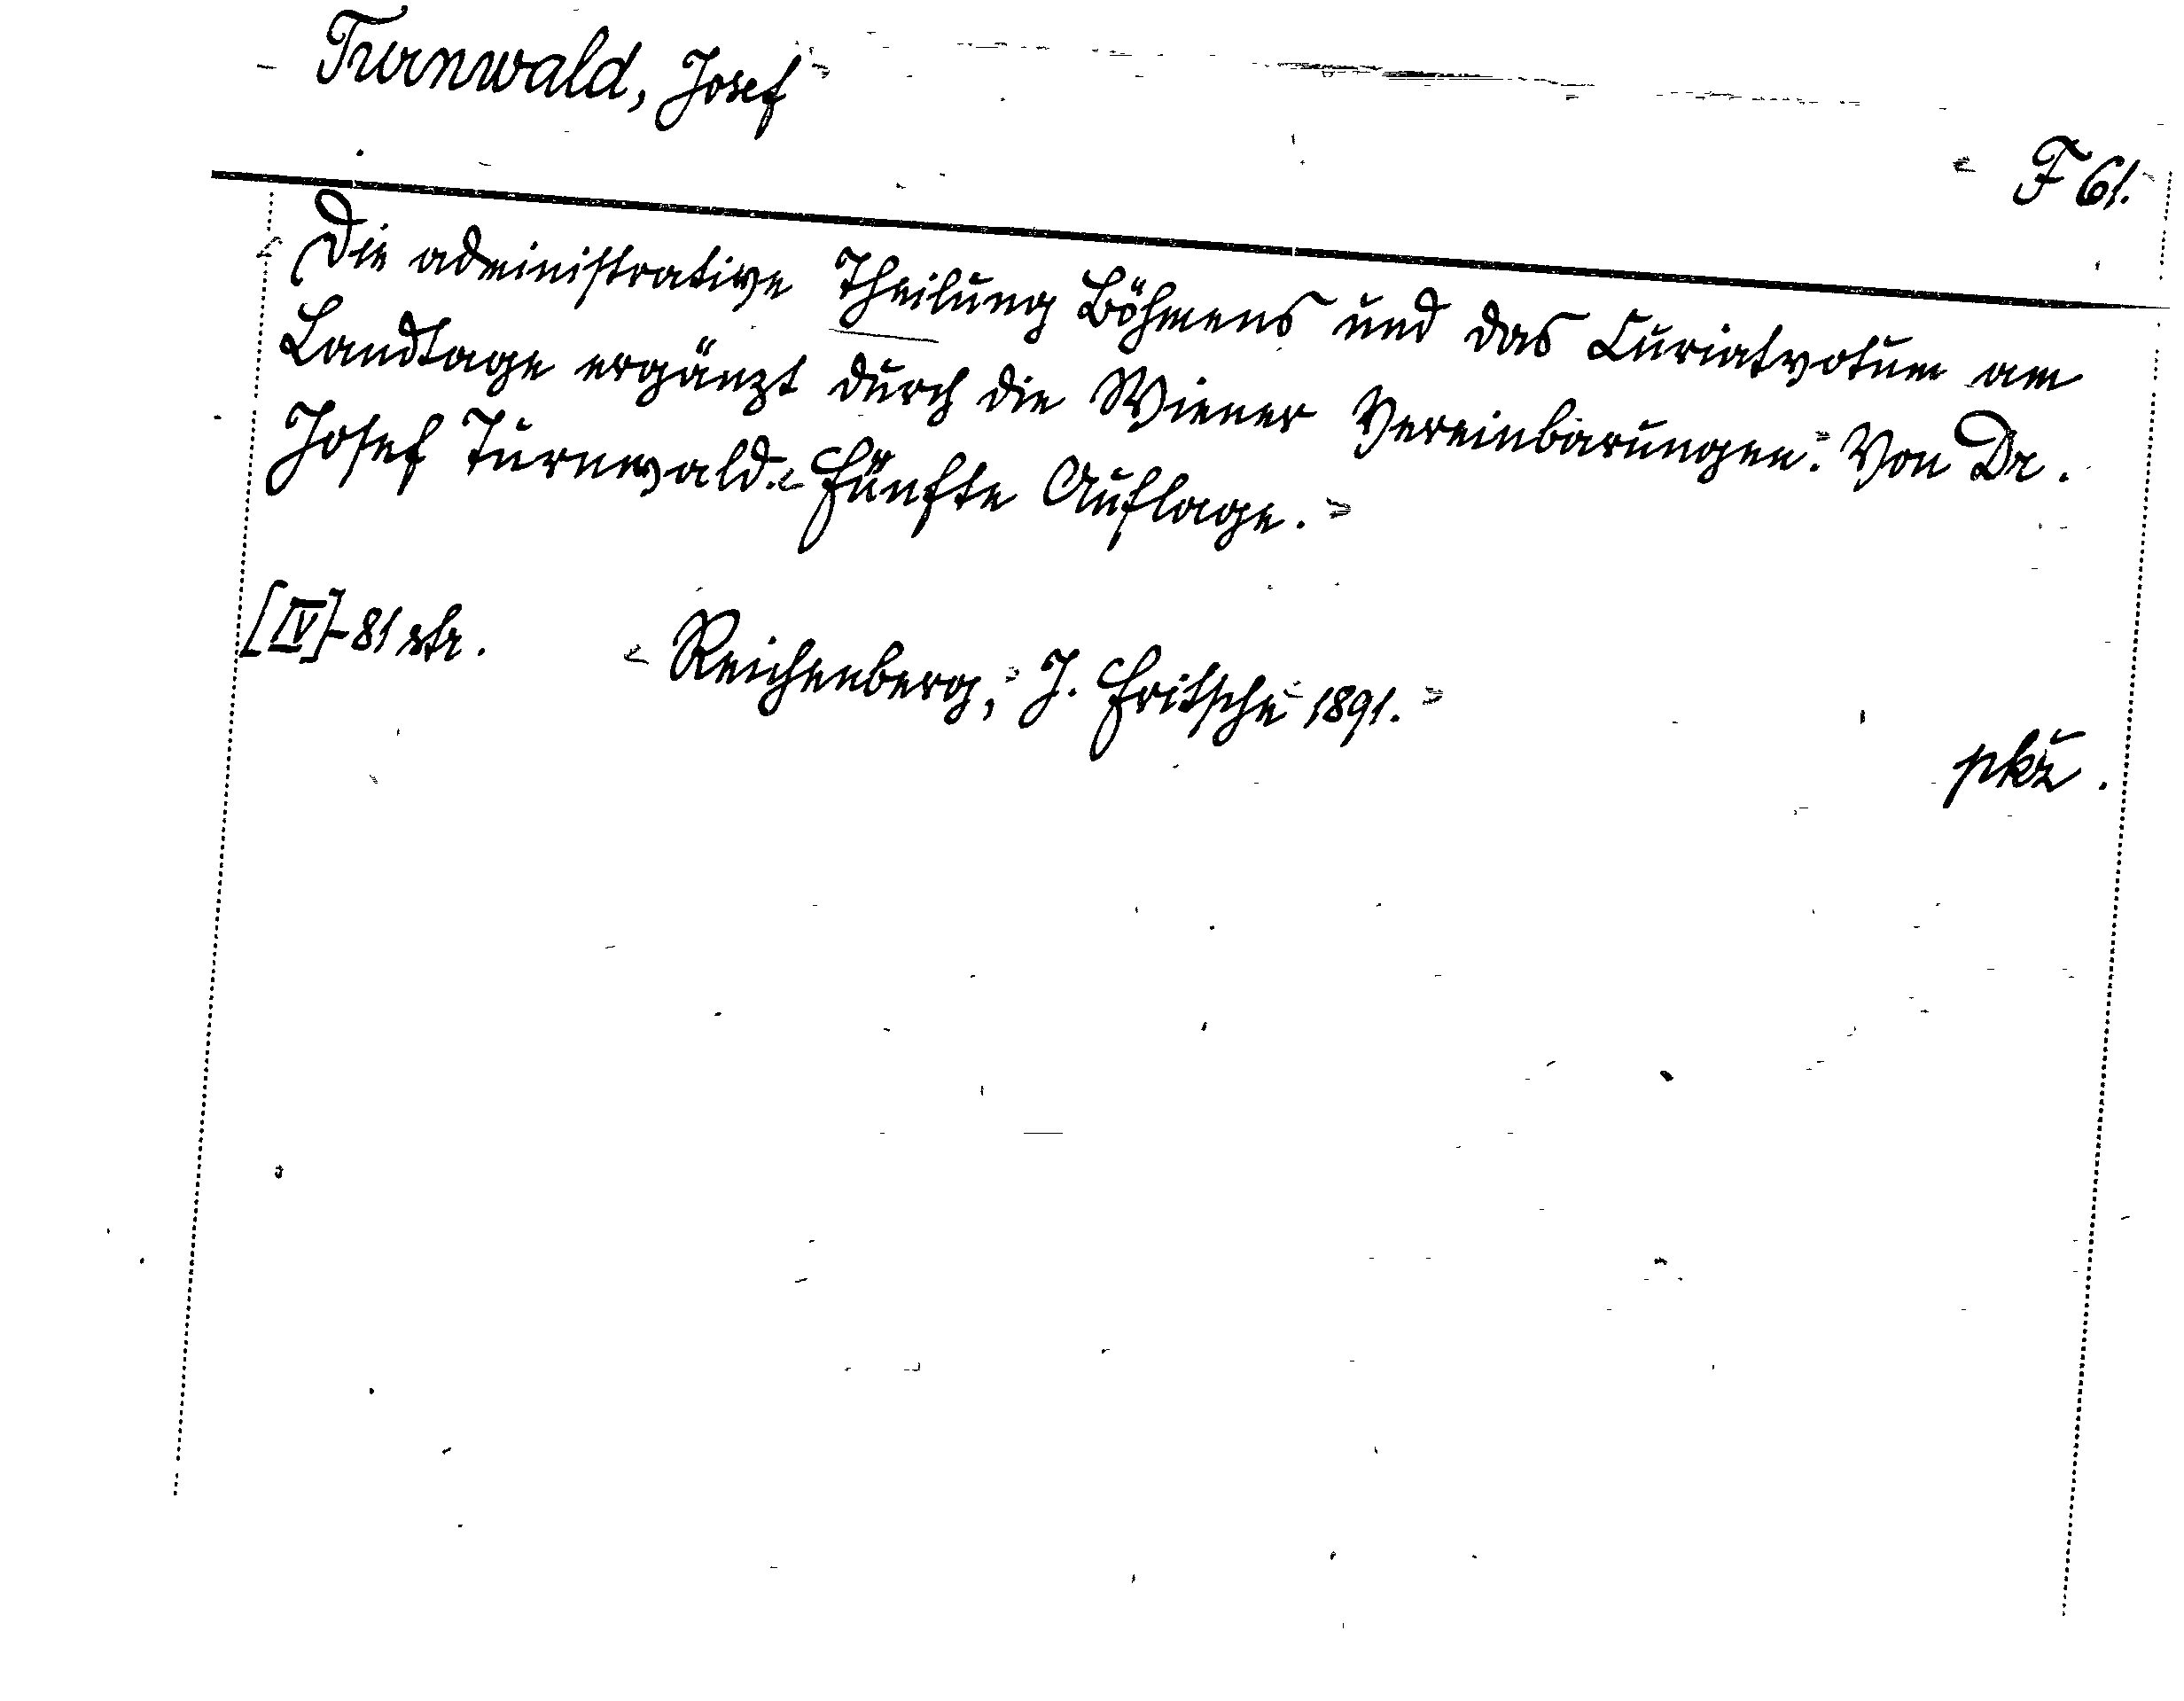 Turnwald, Josef
F 61.
Die administrative Theilung Böhmens und das Curiatvotum am
Landtage ergänzt durch die Wiener Vereinbarungen. Von Dr.
Josef Turnwald. Fünfte Auflage.
[IV]-81 str. Reichenberg, J. Fritsche 1891.
pkž.